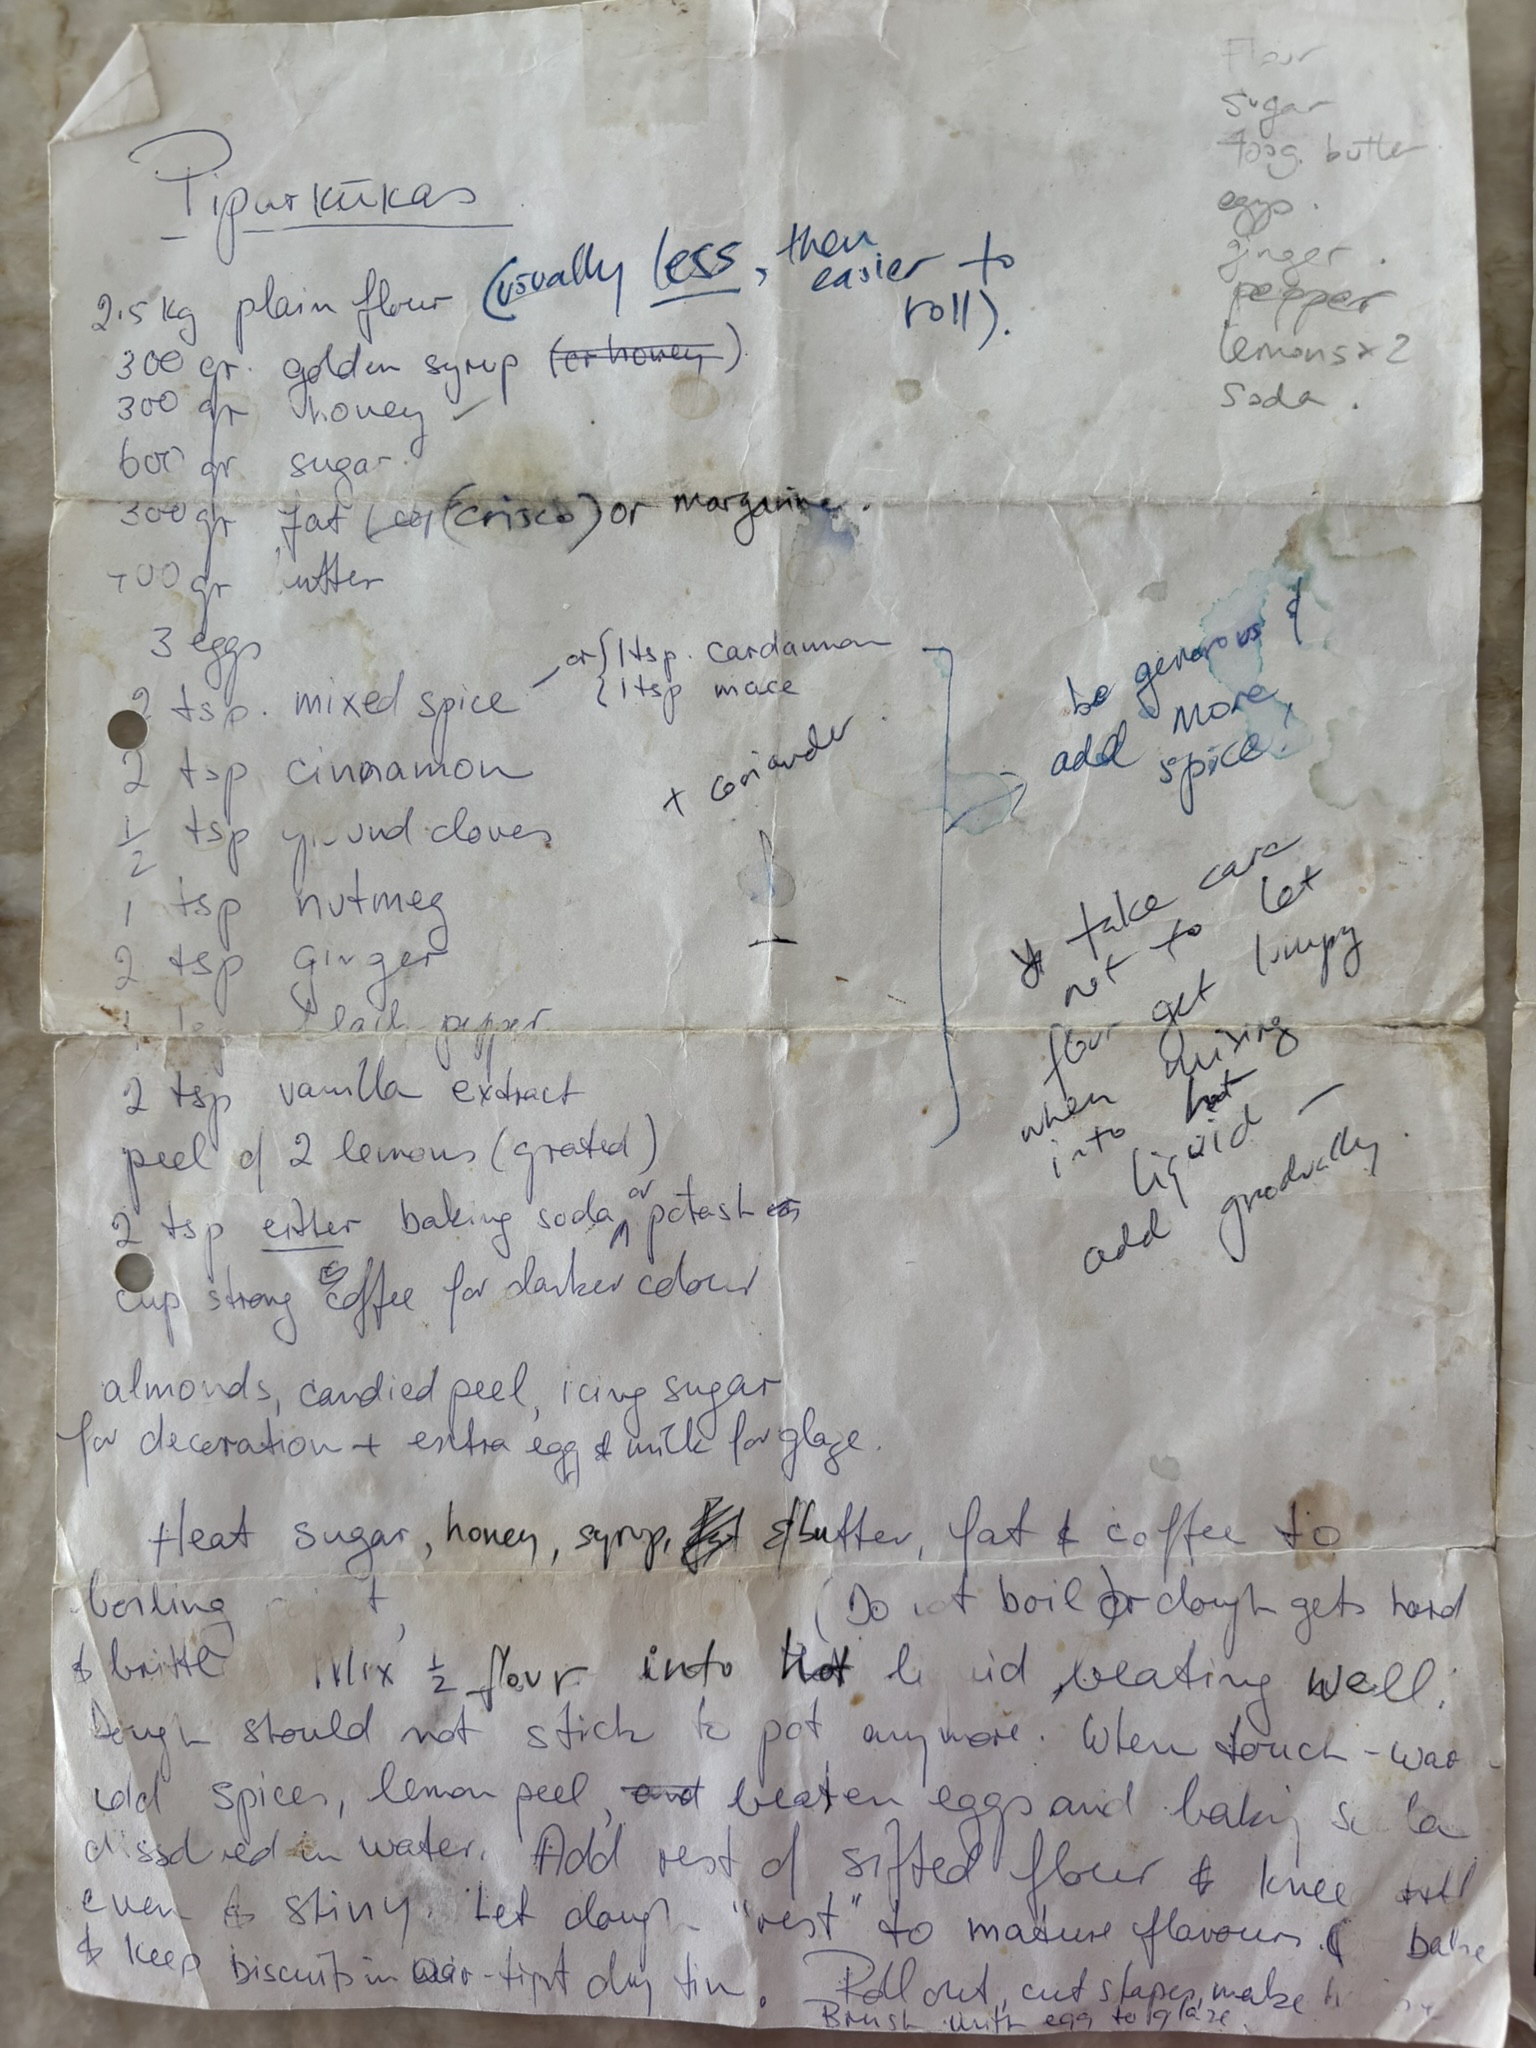 Flour
Sugar
butter
eggs.
ginger.
pepper
lemons x 2
Soda.
Piparkūkas
2.5 Kg plain flour (usually less, then easier to roll).
300 gr. golden syrup (or honey)
300 gr honey
600 gr sugar.
300 gr fat (crisco) or margarine.
gr butter
3 eggs
2 tsp. mixed spice or { 1 tsp. cardamon
{ 1 tsp mace
+ coriander
be generous &
add more
spice!
2 tsp cinnamon
1/2 tsp ground cloves
1 tsp nutmeg
2 tsp ginger
black pepper
2 tsp vanilla extract
peel of 2 lemons (grated)
2 tsp either baking soda or potash
cup strong coffee for darker colour
* take care
not to let
flour get lumpy
when mixing
into hot
liquid –
add gradually.
almonds, candied peel, icing sugar
for decoration + extra egg & milk for glaze.
Heat sugar, honey, syrup, & butter, fat & coffee to
boiling (Do not boil or dough gets hard
& brittle Mix 1/2 flour into hot liquid, beating well.
Dough should not stick to pot anymore. When touch-
add spices, lemon peel, and beaten eggs and baking soda
dissolved in water. Add rest of sifted flour & knee till
even & shiny. Let dough "rest" to mature flavours. & bake
& keep biscuits in air-tight dry tin. Roll out, cut shapes, make
Brush with egg to glaze.